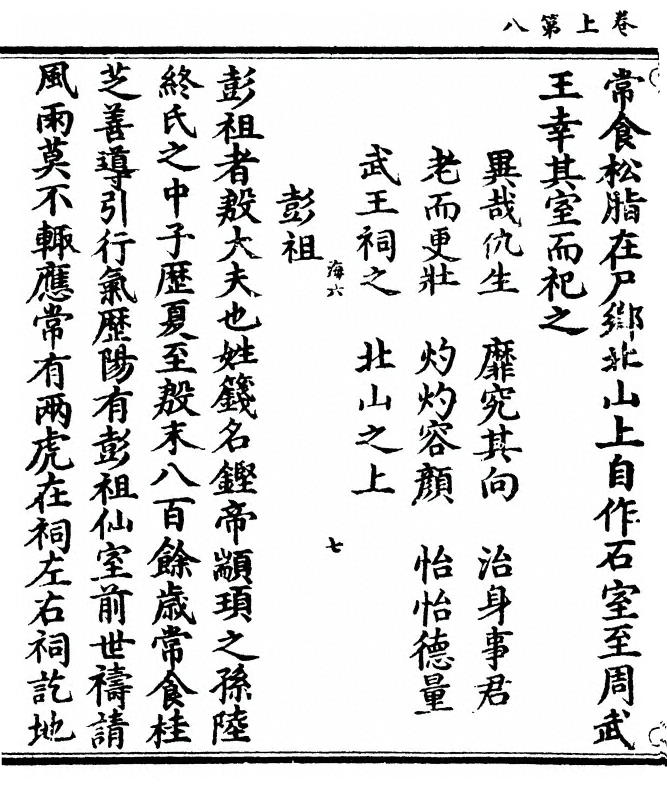 卷上第八
常食松脂在尸鄉北山上自作石室至周武
王幸其室而祀之
異哉仇生 靡究其向 治身事君
老而更壯 灼灼容顏 怡怡德量
武王祠之 北山之上
海六
七
彭祖
彭祖者殷大夫也姓籛名鏗帝顓頊之孫陸
終氏之中子歷夏至殷末八百餘歲常食桂
芝善導引行氣歷陽有彭祖仙室前世禱請
風雨莫不輙應常有兩虎在祠左右祠訖地